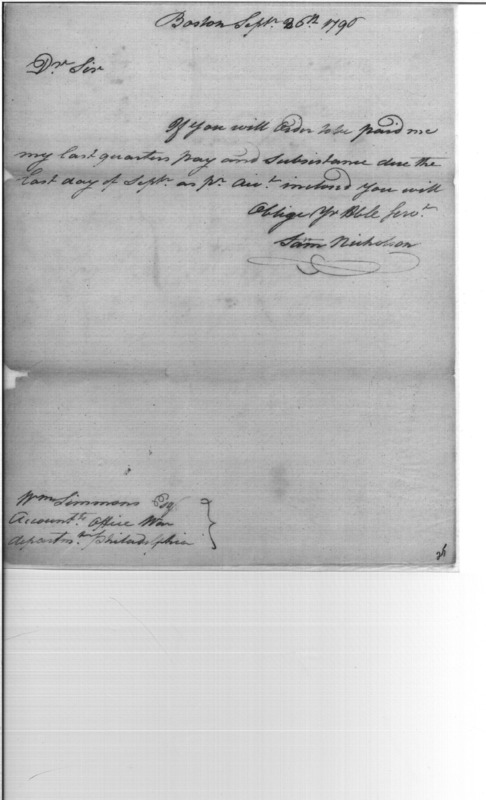 Boston Septr. 26th. 1796
Dr. Sir
If You will Order to be paid me
my last quarters pay and Subsistance due the
last day of Septr. as pr. Acct. inclosed You will
Oblige Yr Hble Servt.
Sam Nicholson
Wm Simmons Esqr
Accountts. Office War
departmt. Philadelphia